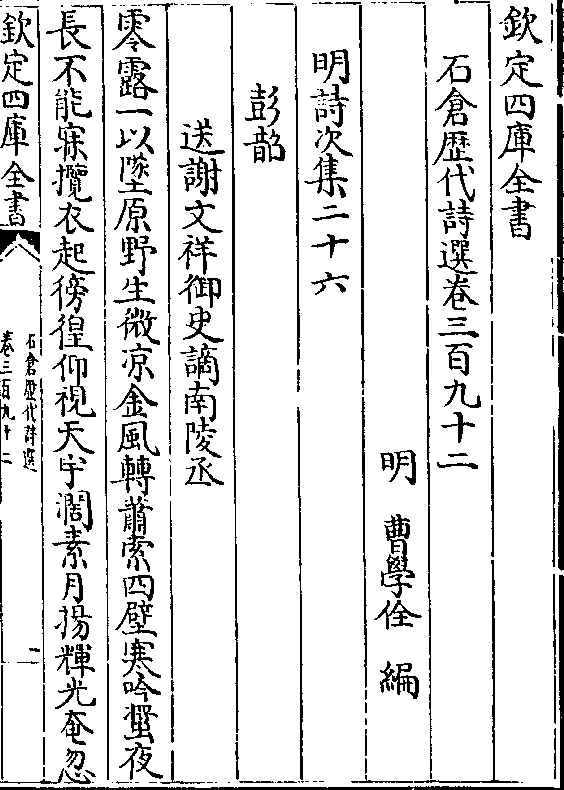 欽定四庫全書
石倉歴代詩選卷三百九十二
明 曹學佺 編
明詩次集二十六
彭韶
送謝文祥御史謫南陵丞
零露一以墜原野生微凉金風轉蕭索四壁寒吟螿夜
長不能寐攬衣起徬徨仰視天宇濶素月揚輝光奄忽
欽定四庫全書
石倉歴代詩選
卷三百九十二
一